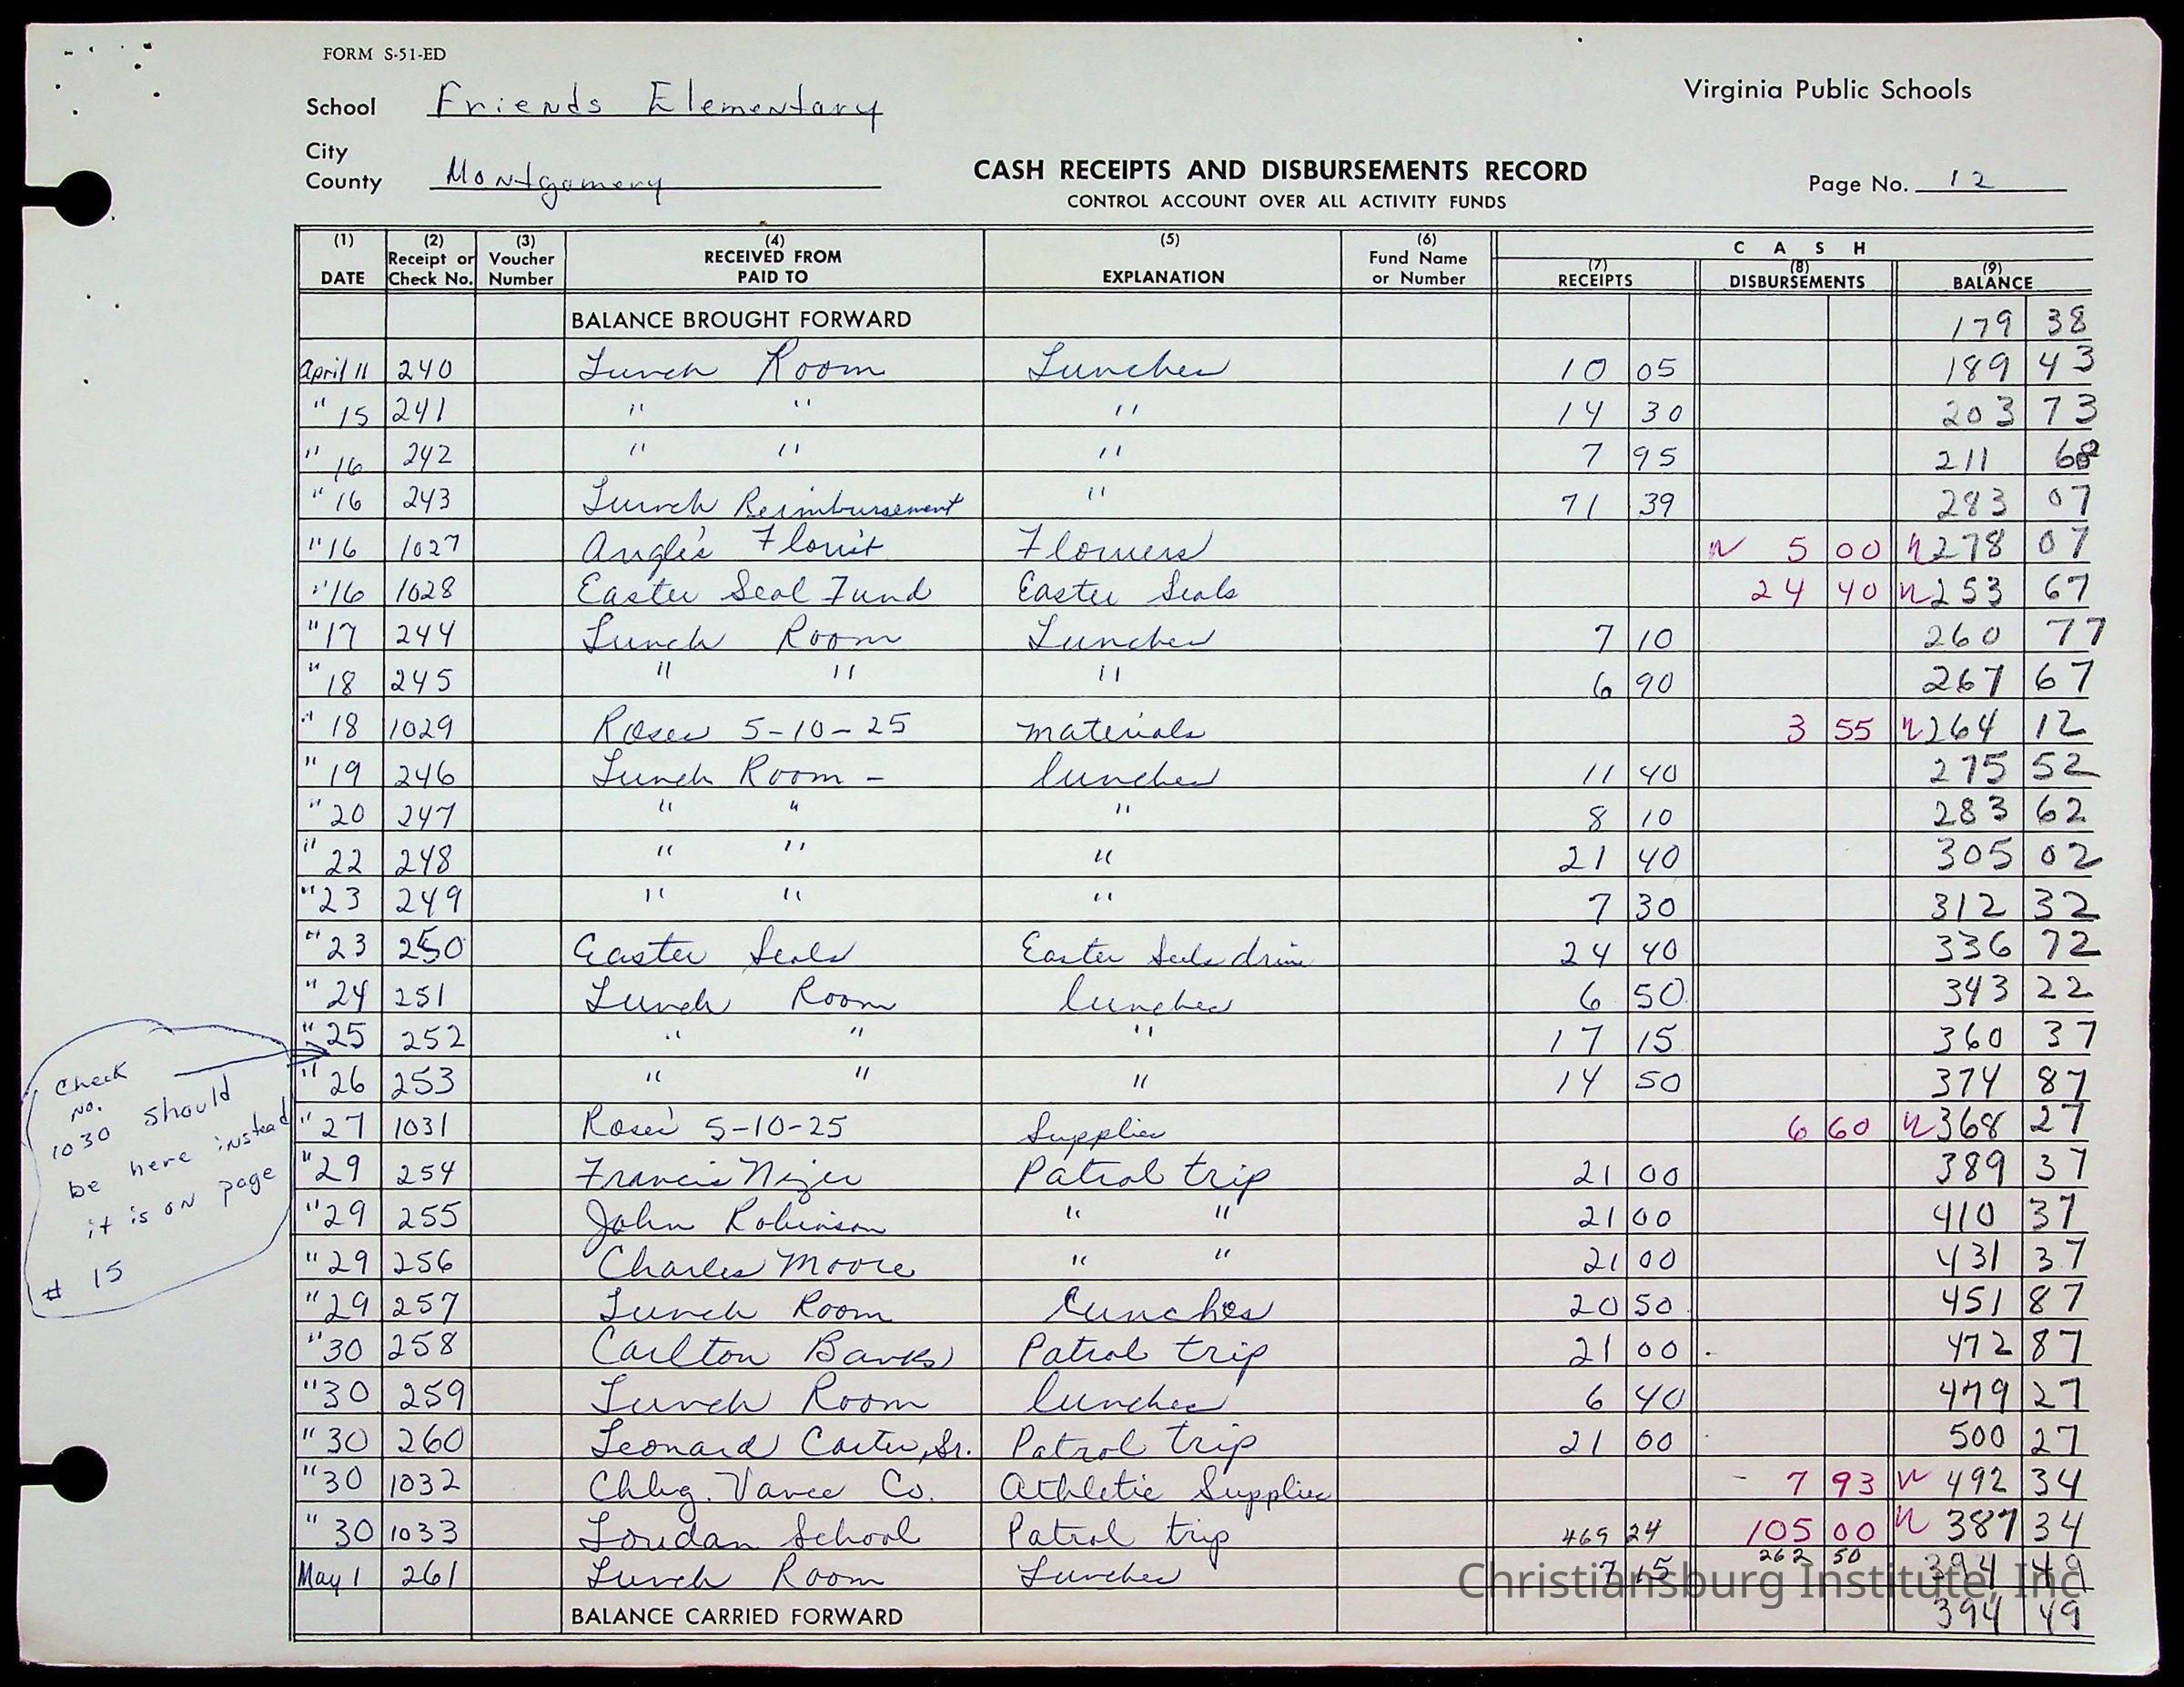 FORM S-51-ED
School Friends Elementary
Virginia Public Schools
City
County Montgomery
CASH RECEIPTS AND DISBURSEMENTS RECORD
Page No. 12
CONTROL ACCOUNT OVER ALL ACTIVITY FUNDS
(1) DATE (2) Receipt or Check No. (3) Voucher Number (4) RECEIVED FROM PAID TO (5) EXPLANATION (6) Fund Name or Number CASH (7) RECEIPTS (8) DISBURSEMENTS (9) BALANCE
BALANCE BROUGHT FORWARD 179 38
April 11 240 Lunch Room Lunches 10 05 189 43
" 15 241 " " " 14 30 203 73
" 16 242 " " " 7 95 211 68
" 16 243 Lunch Reimbursement " 71 39 283 07
" 16 1027 Angle's Florist Flowers 5 00 278 07
" 16 1028 Easter Seal Fund Easter Seals 24 40 253 67
" 17 244 Lunch Room Lunches 7 10 260 77
" 18 245 " " " 6 90 267 67
" 18 1029 Roses 5-10-25 materials 3 55 264 12
" 19 246 Lunch Room - lunches 11 40 275 52
" 20 247 " " " 8 10 283 62
" 22 248 " " " 21 40 305 02
" 23 249 " " " 7 30 312 32
" 23 250 Easter Seals Easter Seals drive 24 40 336 72
" 24 251 Lunch Room lunches 6 50 343 22
" 25 252 " " " 17 15 360 37
" 26 253 " " " 14 50 374 87
" 27 1031 Roses 5-10-25 Supplies 6 60 368 27
" 29 254 Francis Patrol trip 21 00 389 37
" 29 255 John Robinson " " 21 00 410 37
" 29 256 Charles Moore " " 21 00 431 37
" 29 257 Lunch Room Lunches 20 50 451 87
" 30 258 Carlton Banks Patrol trip 21 00 472 87
" 30 259 Lunch Room lunches 6 40 479 27
" 30 260 Leonard Carter, Sr. Patrol trip 21 00 500 27
" 30 1032 Chbg. Vance Co. Athletic Supplies - 7 93 492 34
" 30 1033 Loudan School Patrol trip 469 24 105 00 387 34
262 50
May 1 261 Lunch Room Lunches 7 15 394 49
BALANCE CARRIED FORWARD 394 49
Check
No.
1030 should
be here instead
it is on page
# 15
Christiansburg Institute, Inc